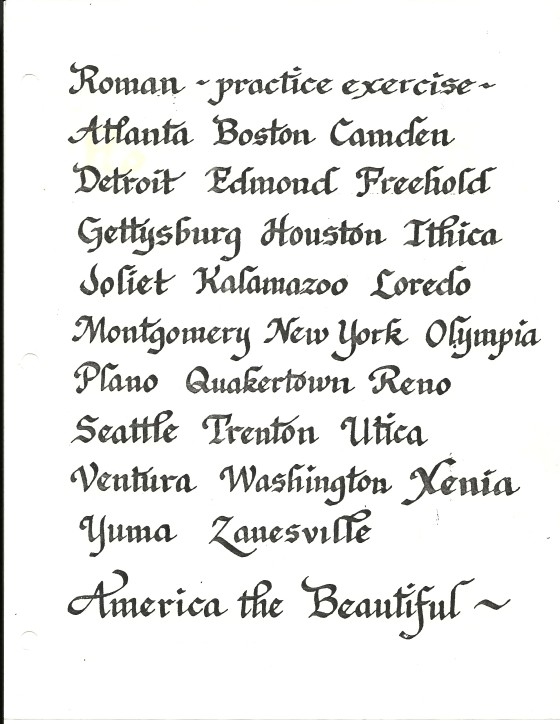 Roman ~ practice exercise ~
Atlanta Boston Camden
Detroit Edmond Freehold
Gettysburg Houston Ithica
Joliet Kalamazoo Loredo
Montgomery New York Olympia
Plano Quakertown Reno
Seattle Trenton Utica
Ventura Washington Xenia
Yuma Zanesville
America the Beautiful ~